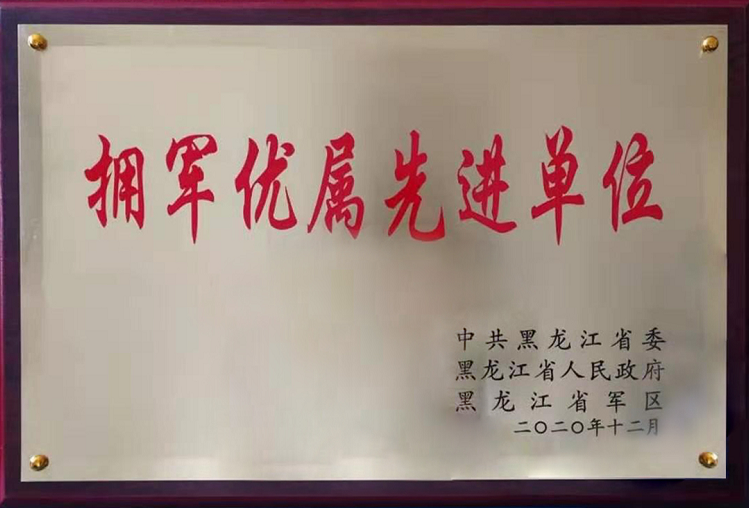 拥军优属先进单位
中共黑龙江省委
黑龙江省人民政府
黑龙江省军区
二〇二〇年十二月